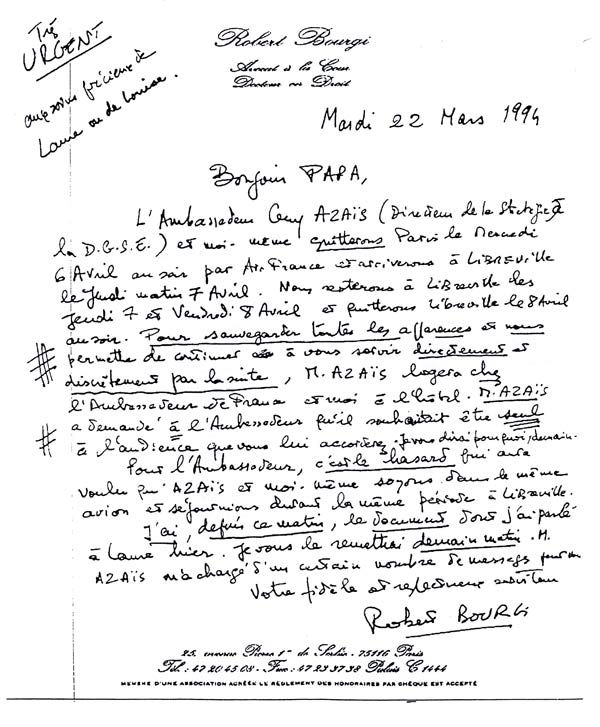 Très
URGENT
aux soins précieux de
Laure ou de Louise.
Robert Bourgi
Avocat à la Cour
Docteur en Droit
Mardi 22 Mars 1994
Bonjour PAPA,
L'Ambassadeur Guy AZAÏS (Directeur de la Stratégie à
la D.G.S.E.) et moi-même quitterons Paris le Mercredi
6 Avril au soir par Air France et arriverons à LIBREVILLE
le Jeudi matin 7 Avril. Nous resterons à Libreville les
Jeudi 7 et Vendredi 8 Avril et quitterons Libreville le 8 Avril
au soir. Pour sauvegarder toutes les apparences et nous
permettre de continuer à vous servir directement et
discrètement par la suite, M. AZAÏS logera chez
l'Ambassadeur de France et moi à l'hôtel. M. AZAÏS
a demandé à l'Ambassadeur qu'il souhaitait être seul
à l'audience que vous lui accordez. Je vous dirai pourquoi, demain.
Pour l'Ambassadeur, c'est le hasard qui aura
voulu qu'AZAÏS et moi-même soyons dans le même
avion et séjournions durant la même période à Libreville.
J'ai, depuis ce matin, le document dont j'ai parlé
à Laure hier. Je vous le remettrai demain matin. M.
AZAÏS m'a chargé d'un certain nombre de messages pour vous
Votre fidèle et respectueux
Robert BOURGI
25, avenue Pierre 1er de Serbie - 75116 Paris
Tél.: 47 20 45 08 - Fax: 47 23 37 38 Palais C 1444
MEMBRE D'UNE ASSOCIATION AGRÉÉE LE RÈGLEMENT DES HONORAIRES PAR CHÈQUE EST ACCEPTÉ